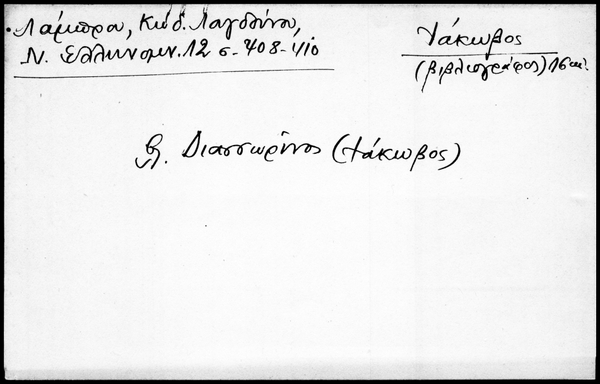 Λάμπρου, Κωδ. Λαγδίνου,
Ν. Ελληνομν. 12 σ. 408-410
Ἰάκωβος
(βιβλιογράφος) 16 αἰ.
βλ. Διασσωρίνος (Ἰάκωβος)